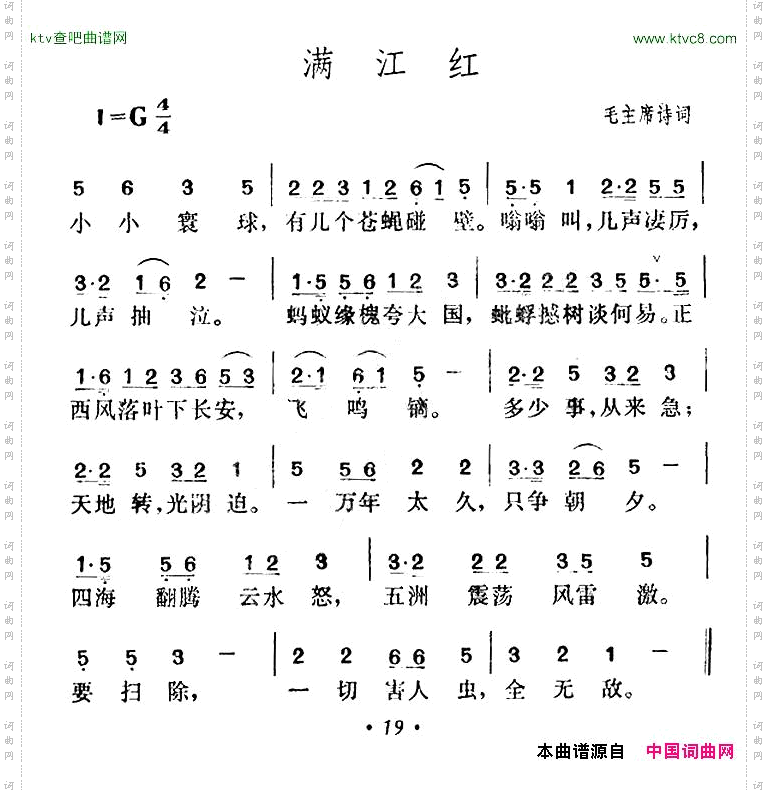 ktv查吧曲谱网
www.ktvc8.com
满江红
1=G 4/4
毛主席诗词
5 6 3 5 | 2 2 3 1 2 6 1 5 | 5·5 1 2·2 5 5 |
小小寰球，有几个苍蝇碰壁。嗡嗡叫，几声凄厉，
3·2 1 6 2 － | 1·5 5 6 1 2 3 | 3·2 2 2 3 5 5· 5 |
儿声抽泣。蚂蚁缘槐夸大国，蚍蜉撼树谈何易。正
1·6 1 2 3 6 5 3 | 2·1 6 1 5 － | 2·2 5 3 2 3 |
西风落叶下长安，飞鸣镝。多少事，从来急；
2·2 5 3 2 1 | 5 5 6 2 2 | 3·3 2 6 5 － |
天地转，光阴迫。一万年太久，只争朝夕。
1·5 5 6 1 2 3 | 3·2 2 2 3 5 5 |
四海翻腾云水怒，五洲震荡风雷激。
5 5 3 － | 2 2 6 6 5 | 5 3 2 1 － ‖
要扫除，一切害人虫，全无敌。
·19·
本曲谱源自 中国词曲网
词曲网